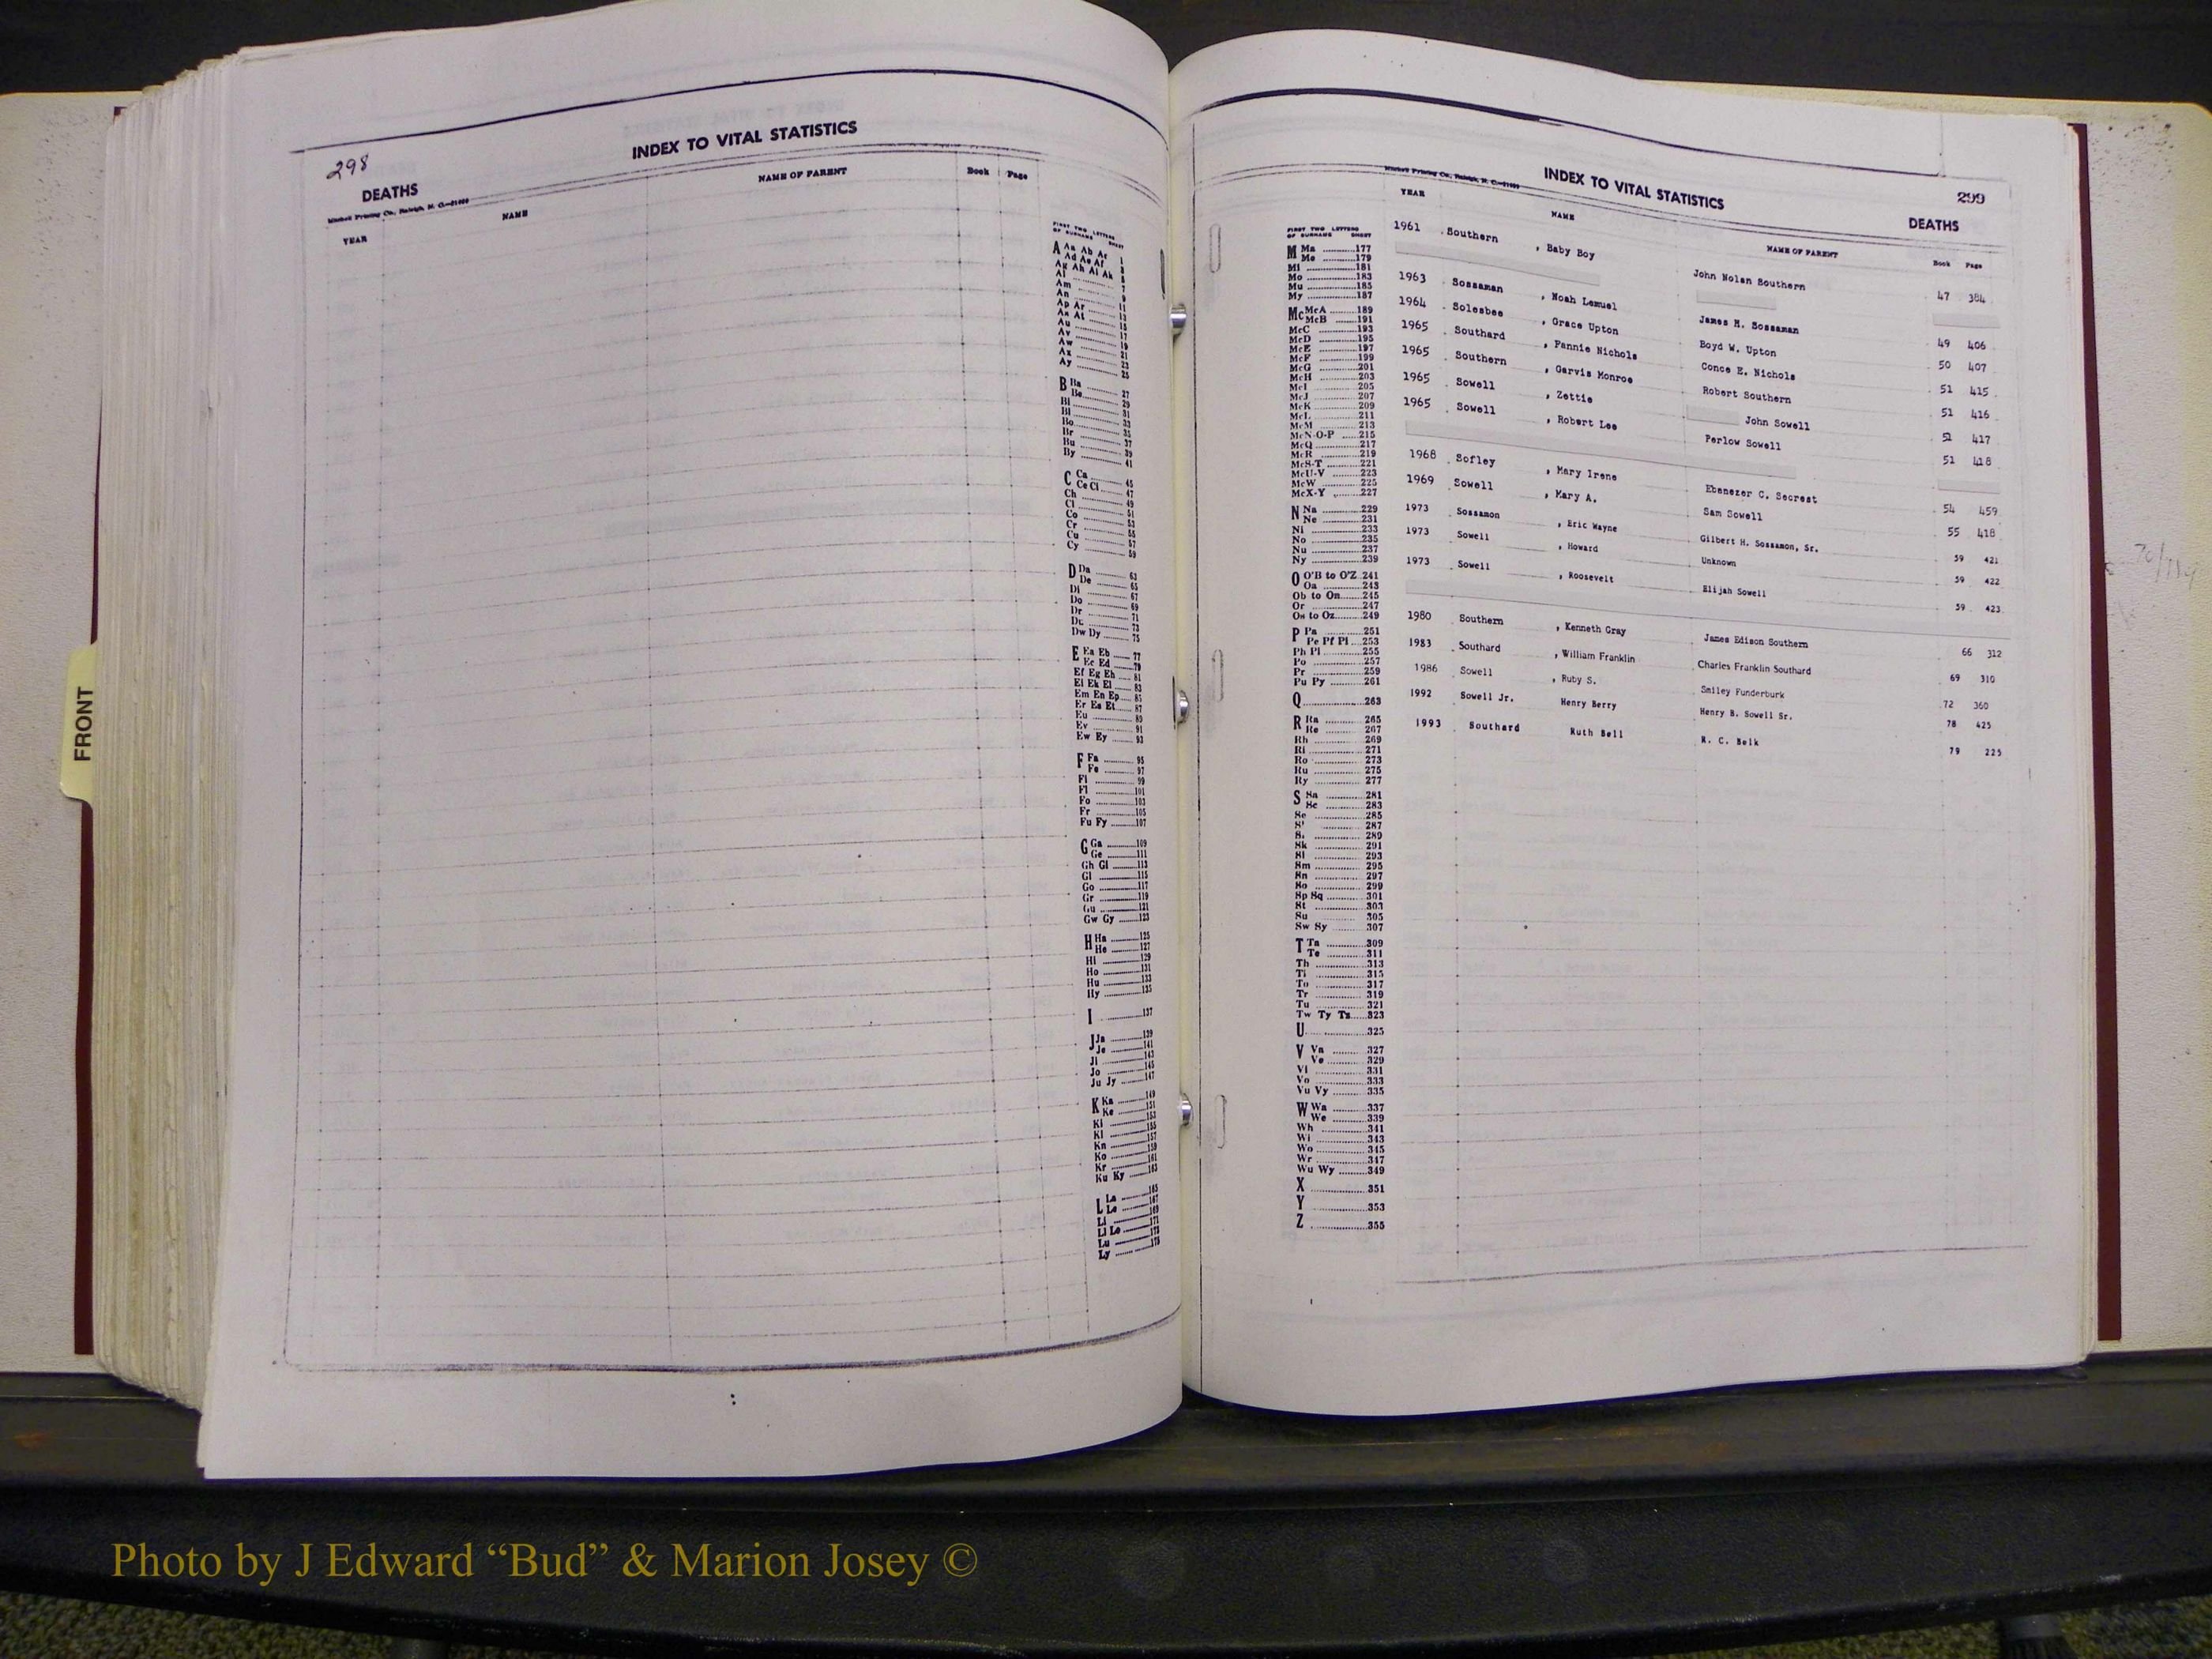 298
INDEX TO VITAL STATISTICS
DEATHS
Mitchell Printing Co., Raleigh, N. C.
YEAR NAME NAME OF PARENT Book Page
FIRST TWO LETTERS
OF SURNAME SHEET
A Aa Ab Ac 1
Ad Ae Af 3
Ag Ah Ai Ak 5
Al 7
Am 9
An 11
Ap Ar 13
As At 15
Au 17
Av 19
Aw 21
Ax 23
Ay 25
B Ba 27
Be 29
Bi 31
Bl 33
Bo 35
Br 37
Bu 39
By 41
C Ca 45
Ce Ci 47
Ch 49
Cl 51
Co 53
Cr 55
Cu 57
Cy 59
D Da 63
De 65
Di 67
Do 69
Dr 71
Du 73
Dw Dy 75
E Ea Eb 77
Ec Ed 79
Ef Eg Eh 81
Ei Ek El 83
Em En Ep 85
Er Es Et 87
Eu 89
Ev 91
Ew Ey 93
F Fa 95
Fe 97
Fi 99
Fl 101
Fo 103
Fr 105
Fu Fy 107
G Ga 109
Ge 111
Gh Gi 113
Gl 115
Go 117
Gr 119
Gu 121
Gw Gy 123
H Ha 125
He 127
Hi 129
Ho 131
Hu 133
Hy 135
I 137
J Ja 139
Je 141
Ji 143
Jo 145
Ju Jy 147
K Ka 149
Ke 151
Ki 153
Kl 155
Kn 157
Ko 159
Kr 161
Ku Ky 163
L La 165
Le 167
Li 169
Ll Lo 171
Lu 173
Ly 175
FRONT
INDEX TO VITAL STATISTICS
299
DEATHS
Mitchell Printing Co., Raleigh, N. C.
YEAR NAME NAME OF PARENT Book Page
1961 Southern , Baby Boy John Nolan Southern 47 384
1963 Sossaman , Noah Lemuel James M. Sossaman 49 406
1964 Solesbee , Grace Upton Boyd W. Upton 50 407
1965 Southard , Fannie Nichols Conce E. Nichols 51 415
1965 Southern , Garvis Monroe Robert Southern 51 416
1965 Sowell , Zettie John Sowell 51 417
1965 Sowell , Robert Lee Perlow Sowell 51 418
1968 Sofley , Mary Irene Ebenezer C. Secrest 54 459
1969 Sowell , Mary A. Sam Sowell 55 418
1973 Sossamon , Eric Wayne Gilbert H. Sossamon, Sr. 59 421
1973 Sowell , Howard Unknown 59 422
1973 Sowell , Roosevelt Elijah Sowell 59 423
1980 Southern , Kenneth Gray James Edison Southern 66 312
1983 Southard , William Franklin Charles Franklin Southard 69 310
1986 Sowell , Ruby S. Smiley Funderburk 72 360
1992 Sowell Jr. Henry Berry Henry B. Sowell Sr. 78 425
1993 Southard Ruth Bell R. C. Belk 79 225
FIRST TWO LETTERS
OF SURNAME SHEET
M Ma 177
Me 179
Mi 181
Mo 183
Mu 185
My 187
Mc McA 189
McB 191
McC 193
McD 195
McE 197
McF 199
McG 201
McH 203
McI 205
McJ 207
McK 209
McL 211
McM 213
McN-O-P 215
McQ 217
McR 219
McS-T 221
McU-V 223
McW 225
McX-Y 227
N Na 229
Ne 231
Ni 233
No 235
Nu 237
Ny 239
O O'B to O'Z 241
Oa 243
Ob to On 245
Or 247
Os to Oz 249
P Pa 251
Pe Pf Pi 253
Ph Pl 255
Po 257
Pr 259
Pu Py 261
Q 263
R Ra 265
Re 267
Rh 269
Ri 271
Ro 273
Ru 275
Ry 277
S Sa 281
Sc 283
Se 285
287
289
Sk 291
Sl 293
Sm 295
Sn 297
So 299
Sp Sq 301
St 303
Su 305
Sw Sy 307
T Ta 309
Te 311
Th 313
Ti 315
To 317
Tr 319
Tu 321
Tw Ty Tz 323
U 325
V Va 327
Ve 329
Vi 331
Vo 333
Vu Vy 335
W Wa 337
We 339
Wh 341
Wi 343
Wo 345
Wr 347
Wu Wy 349
X 351
Y 353
Z 355
Photo by J Edward “Bud” & Marion Josey ©